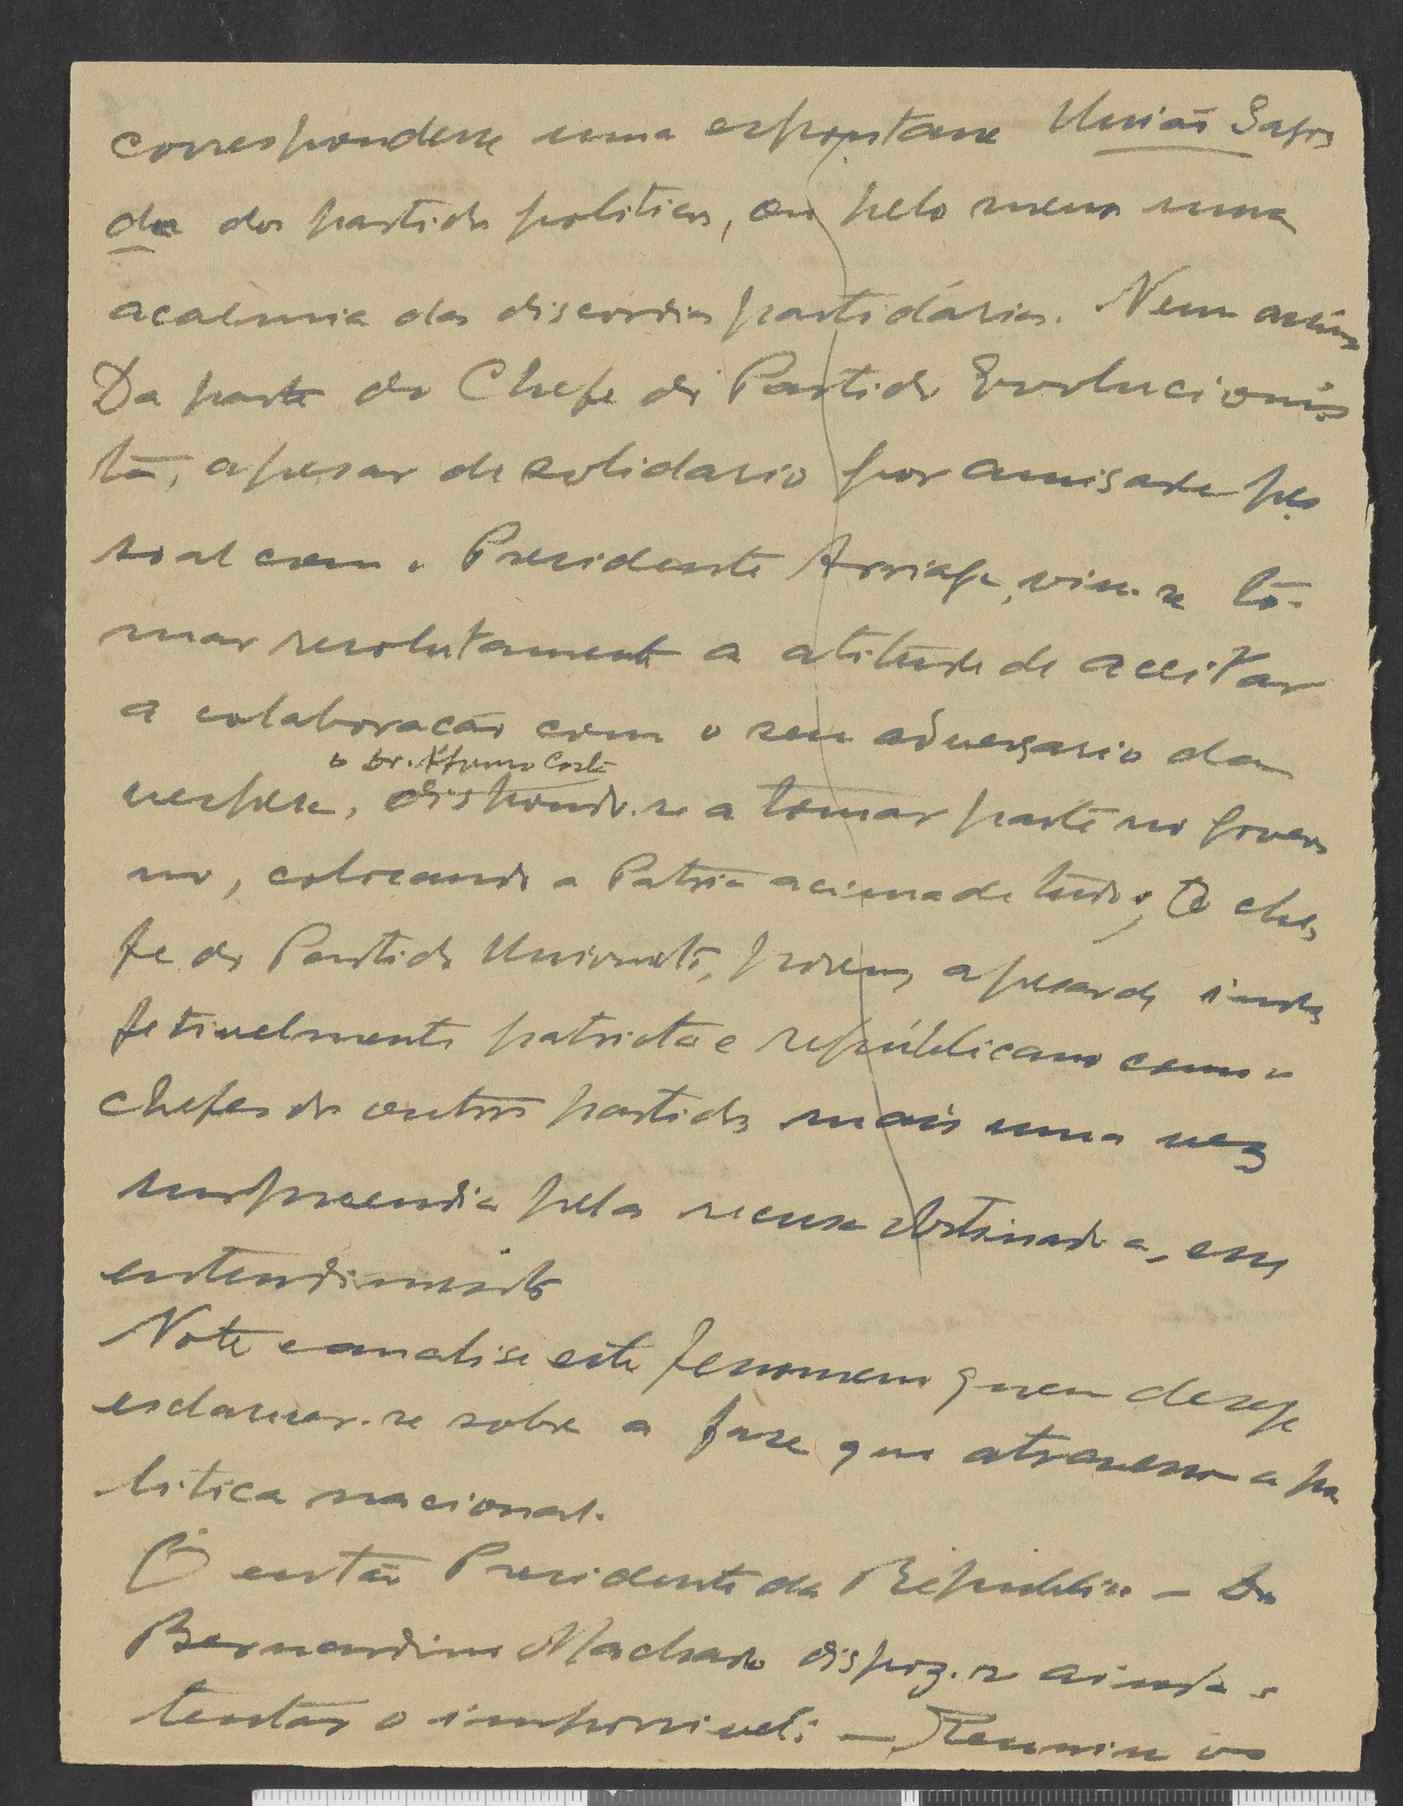 correspondesse uma espontane União Sagra
da dos partidos politicos, ou pelo menos uma
acalmia das discordias partidárias. Nem assim
Da parte do Chefe do Partido Evolucionis
ta, apesar de solidario por amisade pes
soal com o Presidente Arriaga, viu-se to-
mar resolutamente a atitude de aceitar
a colaboracão com o seu adversario da
o Dr. Afonso Costa
vespera, dispondo-se a tomar parte no gover
no, colocando a Patria acima de tudo; O che
fe do Partido Unionista, porem, apesar de inde
fetivelmente patriota e républicano como os
chefes dos outros partidos mais uma vez
surpreendia pela recusa obstinada a, em
entendimento
Note e analise este fenomeno quem deseje
esclarecer-se sobre a fase que atravessa a po
litica nacional.
O então Presidente da Républica — Dr
Bernardino Machado dispoz-se ainda a
tentar o impossivel: — Reuniu os